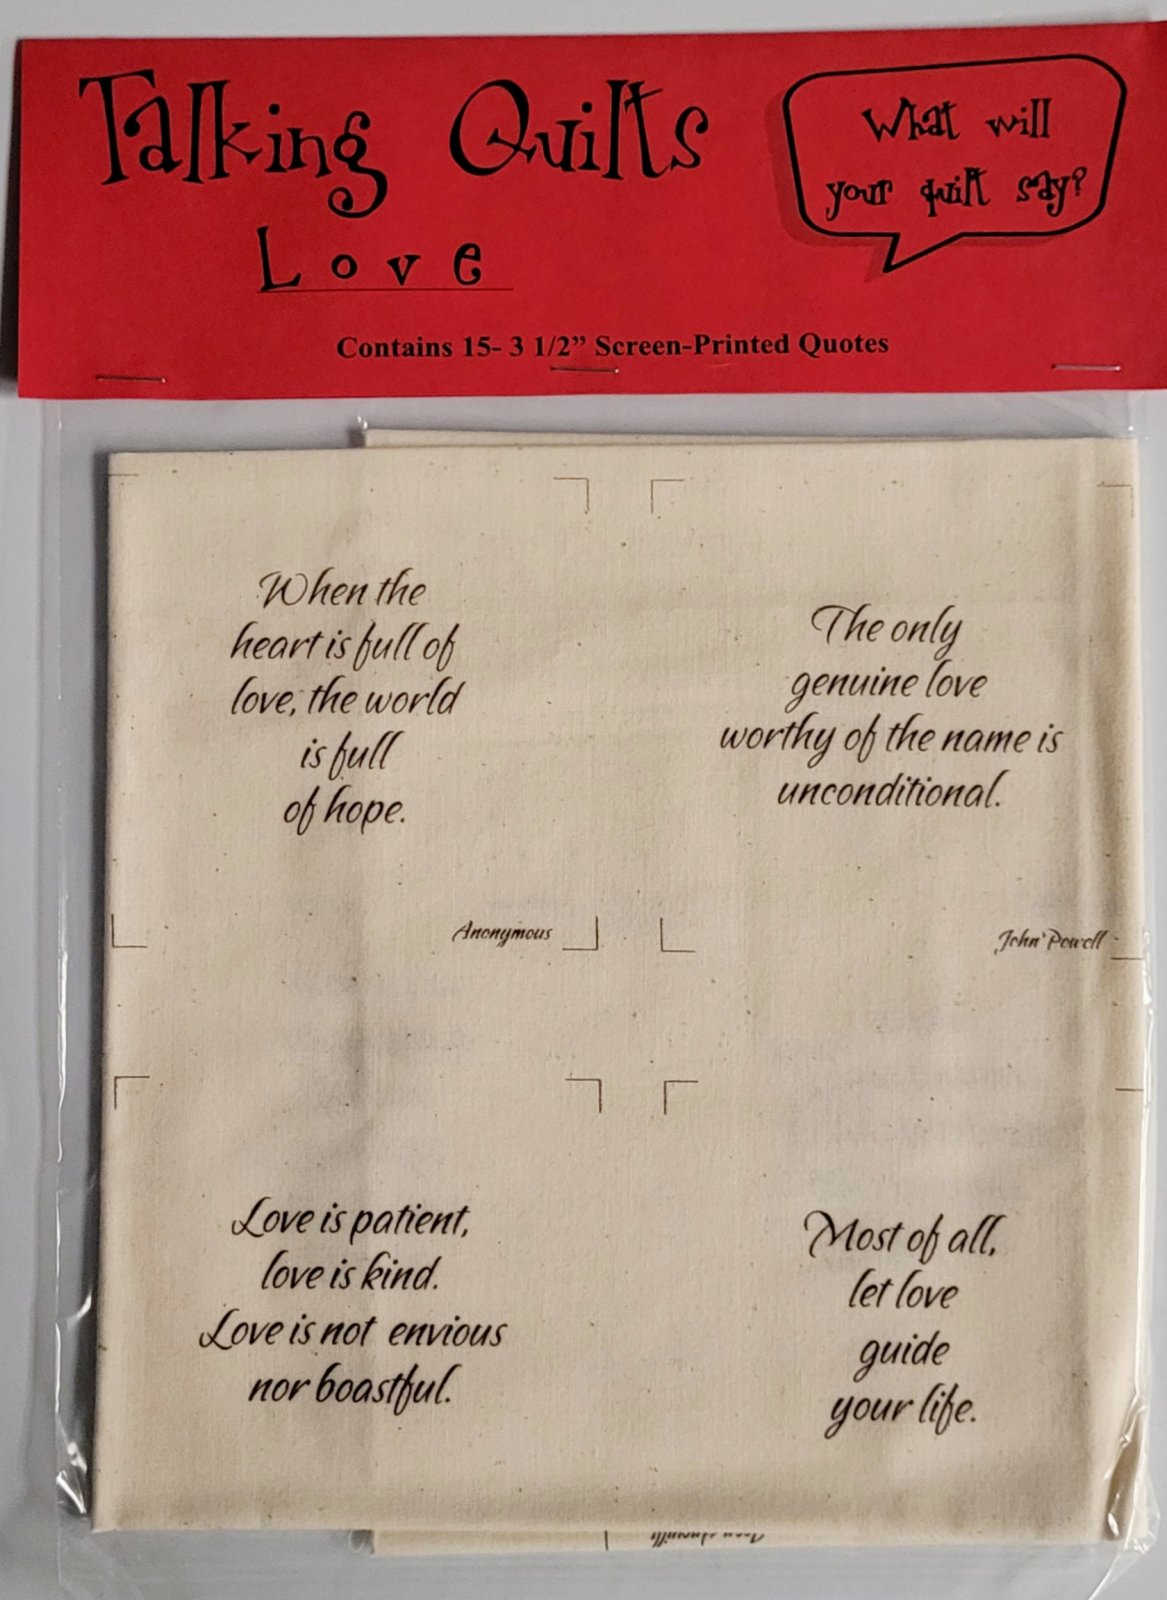 Talking Quilts
Love
What will
your quilt say?
Contains 15- 3 1/2” Screen-Printed Quotes
When the
heart is full of
love, the world
is full
of hope.
Anonymous
The only
genuine love
worthy of the name is
unconditional.
John Powell
Love is patient,
love is kind.
Love is not envious
nor boastful.
Most of all,
let love
guide
your life.